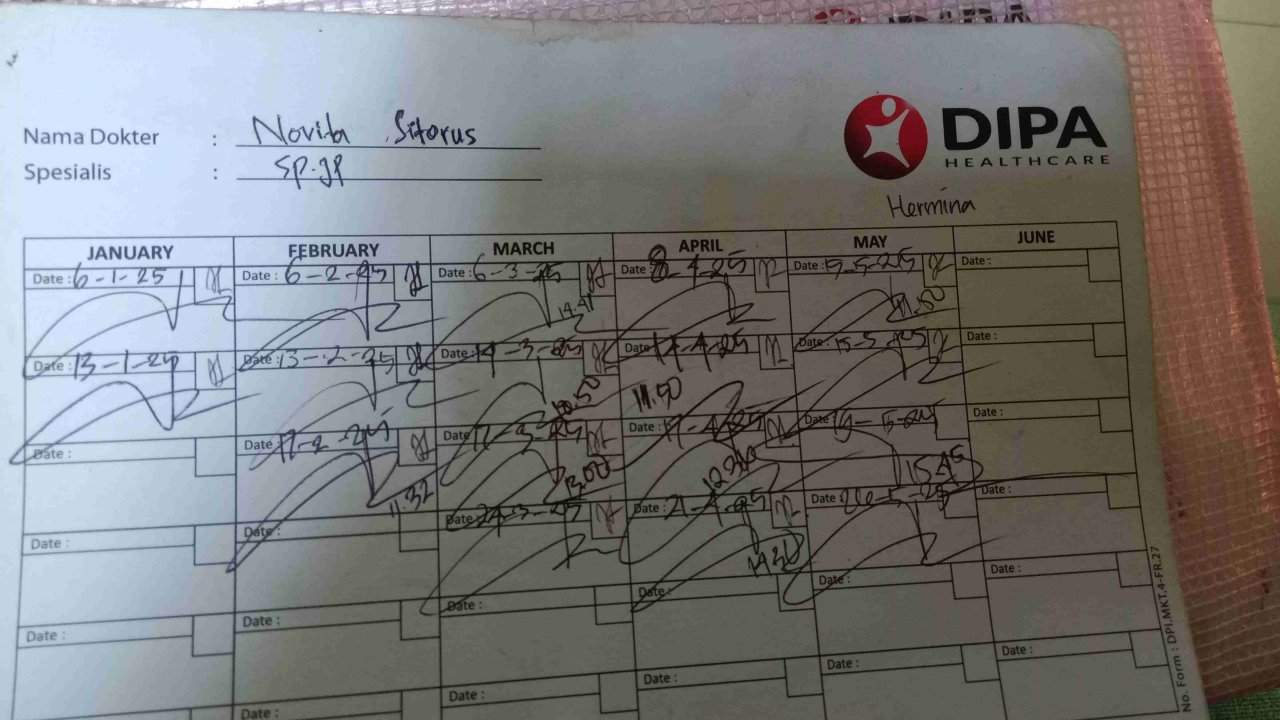 Nama Dokter : Novita Sitorus
Spesialis : SP.JP
DIPA
HEALTHCARE
Hermina
JANUARY FEBRUARY MARCH APRIL MAY JUNE
Date : 6-1-25 Date : 6-2-25 Date : 6-3-25 Date : 8-4-25 Date : 5-5-25 Date :
14.41 11.50
Date : 13-1-25 Date : 13-2-25 Date : 14-3-25 Date : 14-4-25 Date : 15-5-25 Date :
10.50 11.50
Date : Date : 17-2-25 Date : 17-3-25 Date : 17-4-25 Date : 19-5-25 Date :
11.32 13.00 15.45
Date : Date : Date : 24-3-25 Date : 21-4-25 Date : 26-5-25 Date :
14.30
Date : Date : Date : Date : Date :
Date : Date : Date : Date : Date :
No. Form : DPI.MKT.4-FR.27